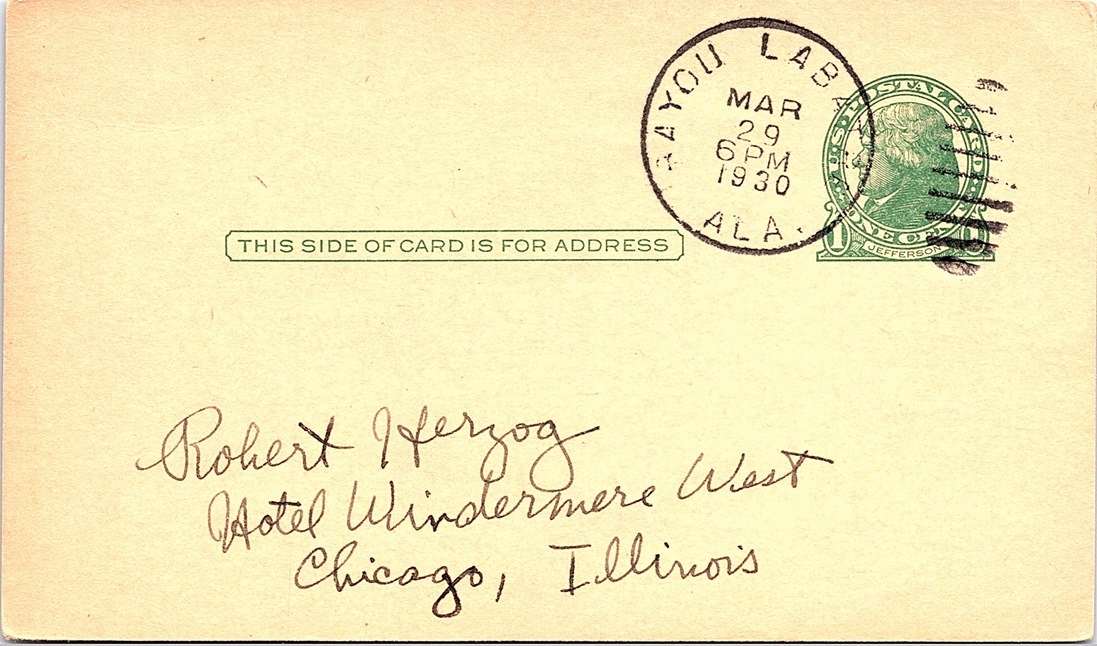 BAYOU LABA
MAR
29
6 PM
1930
ALA.
U.S. POSTAL CARD
ONE CENT
1 JEFFERSON
THIS SIDE OF CARD IS FOR ADDRESS
Robert Herzog
Hotel Windermere West
Chicago, Illinois